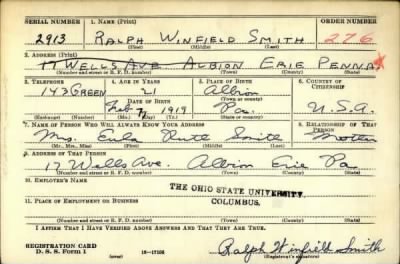 SERIAL NUMBER 1. NAME (Print) ORDER NUMBER
2913 RALPH WINFIELD SMITH 276
(First) (Middle) (Last)
2. ADDRESS (Print)
17 WELLS AVE ALBION ERIE PENNA
(Number and street or R. F. D. number) (Town) (County) (State)
3. TELEPHONE 4. AGE IN YEARS 5. PLACE OF BIRTH 6. COUNTRY OF CITIZENSHIP
143 GREEN 21 Albion
DATE OF BIRTH (Town or county)
Feb 1919 Pa. U.S.A.
(Exchange) (Number) (Mo.) (Day) (Yr.) (State or country)
7. NAME OF PERSON WHO WILL ALWAYS KNOW YOUR ADDRESS 8. RELATIONSHIP OF THAT PERSON
Mrs. Ruth Smith Mother
(Mr., Mrs., Miss) (First) (Middle) (Last)
9. ADDRESS OF THAT PERSON
17 Wells Ave. Albion Erie Pa
(Number and street or R. F. D. number) (Town) (County) (State)
10. EMPLOYER'S NAME
THE OHIO STATE UNIVERSITY
11. PLACE OF EMPLOYMENT OR BUSINESS COLUMBUS.
(Number and street or R. F. D. number) (Town) (County) (State)
I AFFIRM THAT I HAVE VERIFIED ABOVE ANSWERS AND THAT THEY ARE TRUE.
REGISTRATION CARD
D. S. S. Form 1 Ralph Winfield Smith
(Registrant's signature)